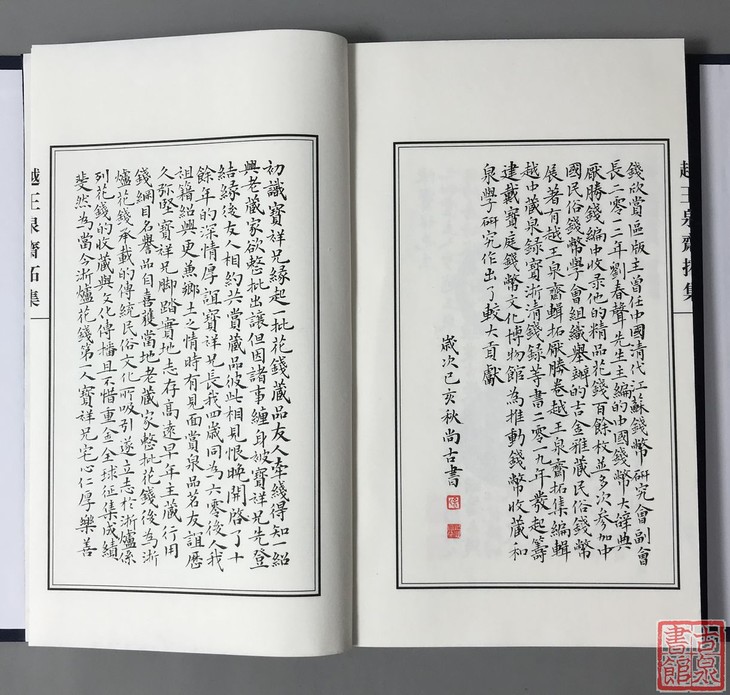 越王泉齋拓集
錢欣賞區版主曾任中國清代江蘇錢幣研究會副會
長二零一二年劉春聲先生主編的中國錢幣大辭典
厭勝錢編中收录他的精品花錢百餘枚並多次參加中
國民俗錢幣學會組織舉辦的古金雅蔵民俗錢幣
展著有越王泉齋輯拓厭勝卷越王泉齋拓集編輯
越中蔵泉録寶浙清錢録荨書二零一九年發起籌
建戴寶庭錢幣文化博物館為推動錢幣收蔵和
泉學研究作出了較大貢獻
歲次己亥秋尚古書
初識寶祥兄緣起一批花錢蔵品友人牽綫得知一紹
興老蔵家欲整批出讓但因諸事纏身被寶祥兄先登
結緣後友人相約共賞蔵品彼此相見恨晚開啓了十
餘年的深情厚誼寶祥兄長我四歲同為六零後人我
祖籍紹興更兼鄉土之情時有見面賞泉品茗友誼歷
久弥堅寶祥兄脚踏實地志存高遠早年主蔵行用
錢綱目名譽品自喜獲當地老蔵家整批花錢後為浙
爐花錢承載的傳統民俗文化所吸引遂立志於浙爐係
列花錢的收蔵與文化傳播且不惜重金全球征集成績
斐然為當今浙爐花錢第一人寶祥兄宅心仁厚樂善
越王泉齋拓集
古泉書館